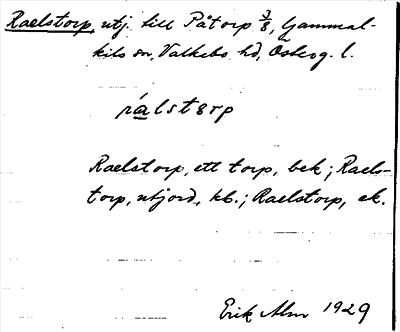 Raelstorp, utj. till Påtorp 3/8, Gammal-
kils sn, Valkebo hd, Österg. l.
rálstɜrp
Raelstorp, ett torp, bek; Raels-
torp, utjord, kb.; Raelstorp, ek.
Erik Alm 1929